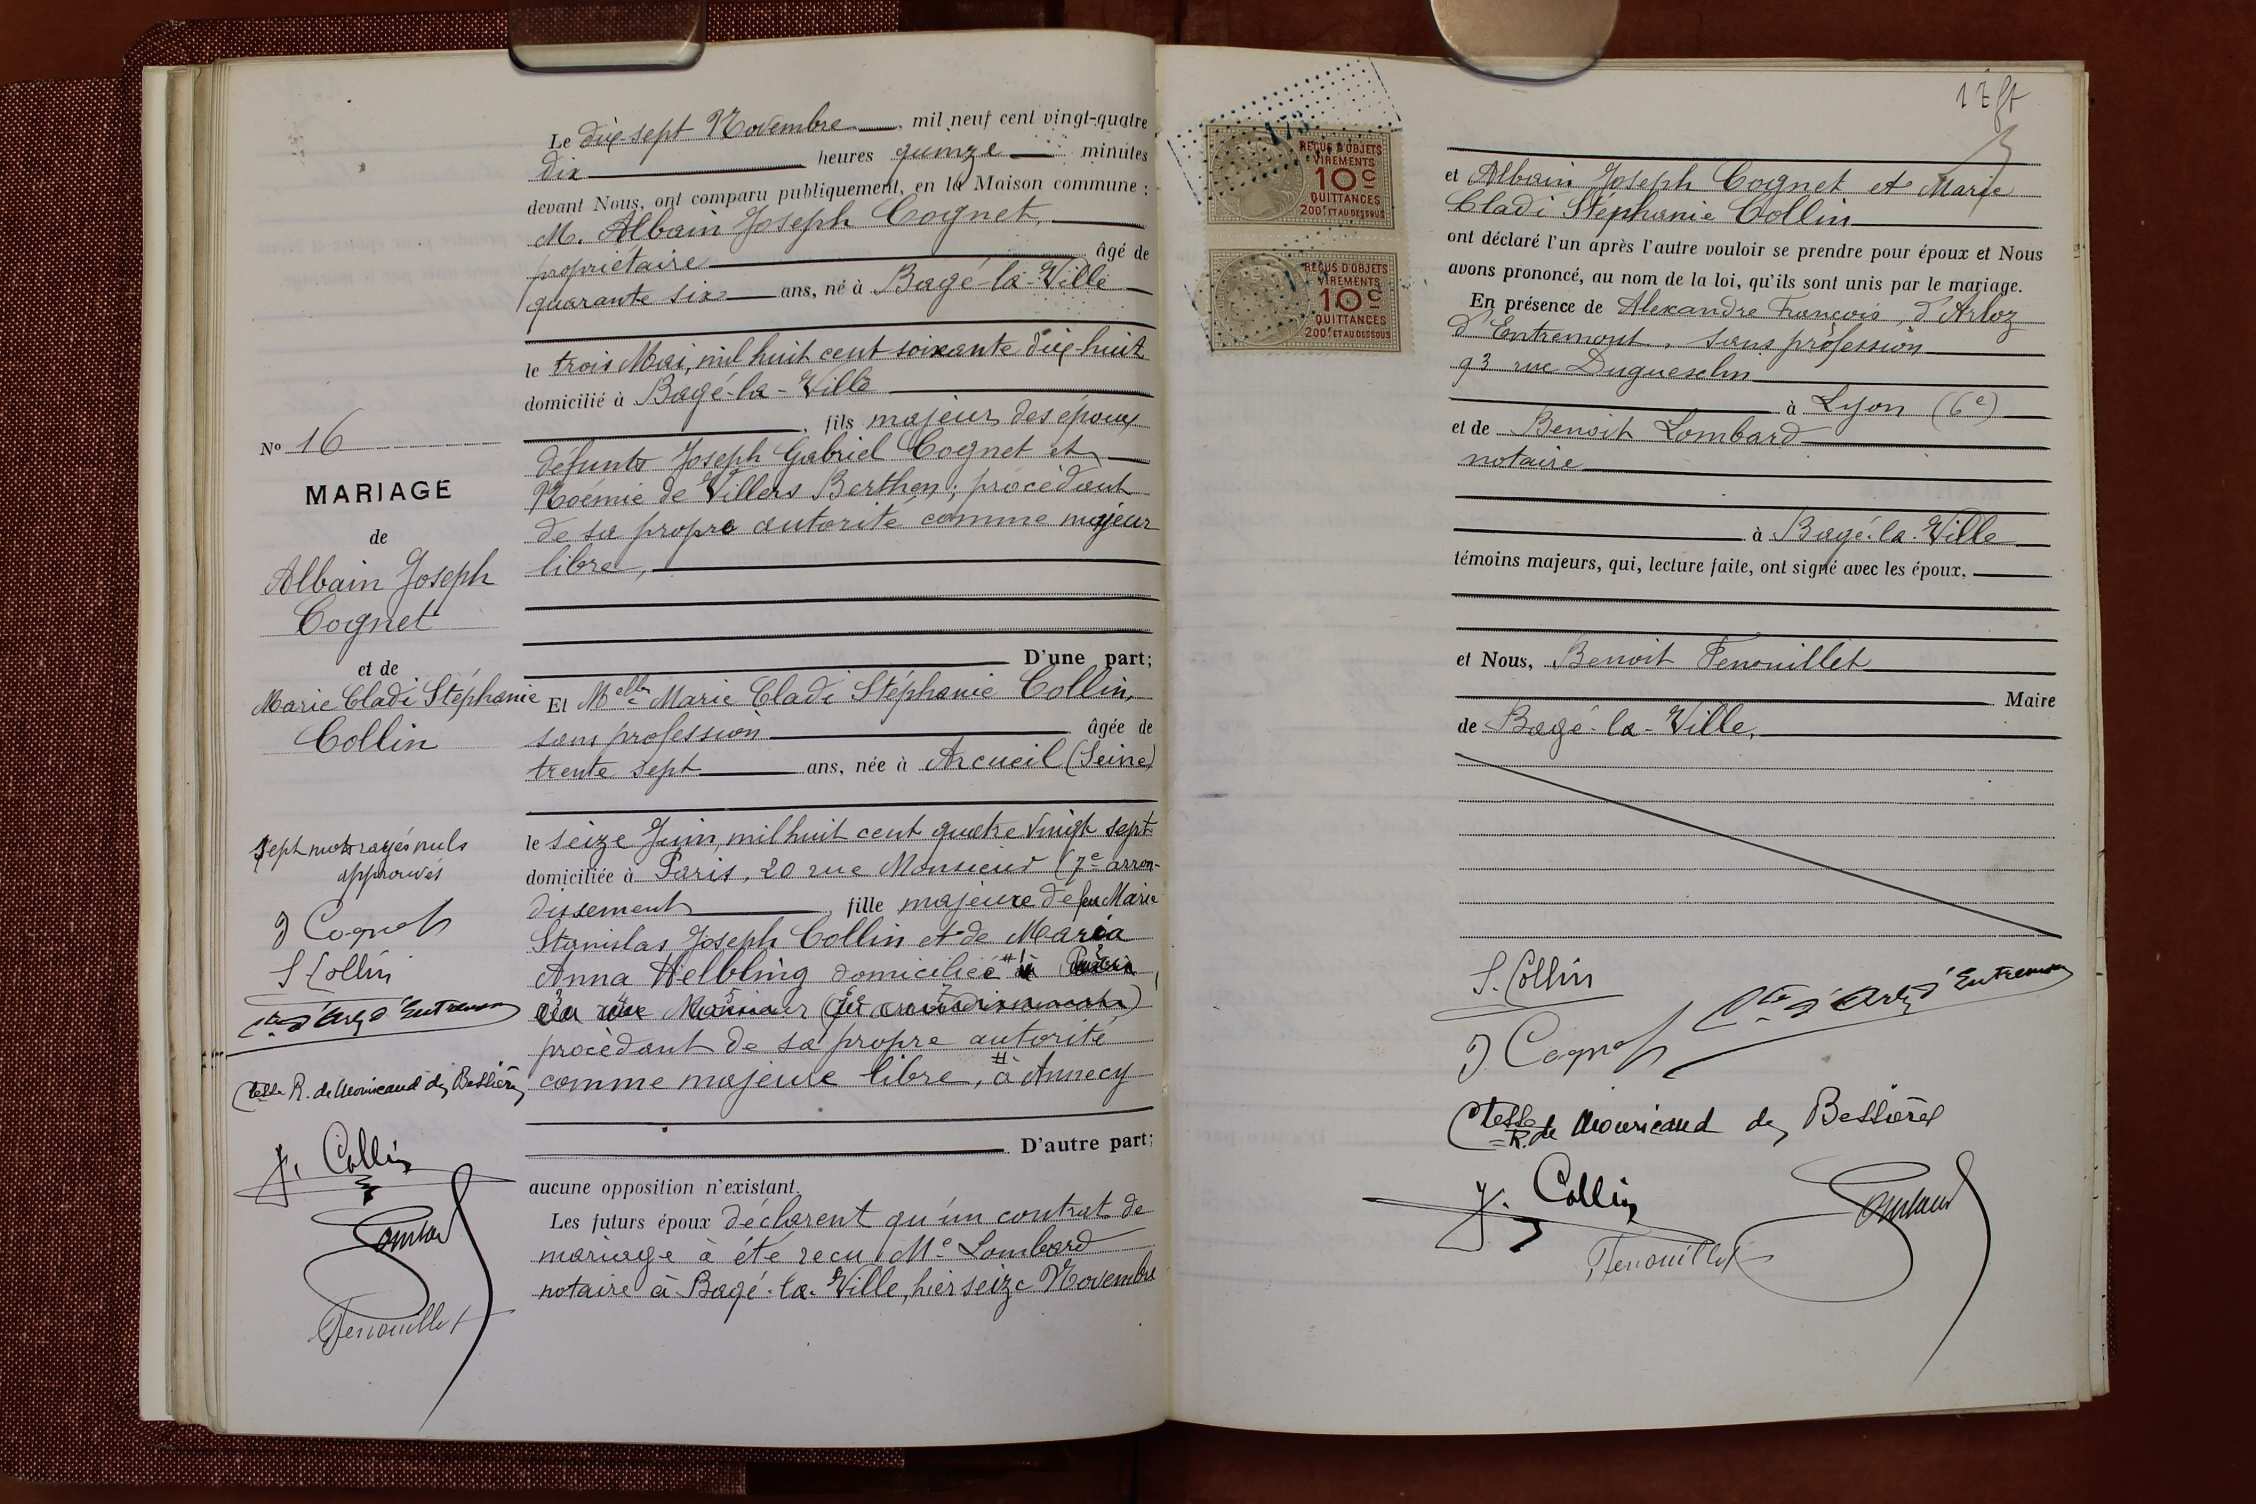 Le dix sept Novembre mil neuf cent vingt-quatre
dix heures quinze minutes
devant Nous, ont comparu publiquement, en la Maison commune :
M. Albain Joseph Cognet,
propriétaire âgé de
quarante six ans, né à Bagé-la-Ville
le trois Mai, mil huit cent soixante dix huit
domicilié à Bagé-la-Ville
, fils majeur des époux
défunts Joseph Gabriel Cognet et
Noémie de Villers Berthen; procédant
de sa propre autorité comme majeur
libre,
D'une part;
Et Melle Marie Cladi Stéphanie Collin,
sans profession âgée de
trente sept ans, née à Arcueil (Seine)
le seize Juin, mil huit cent quatre vingt sept
domiciliée à Paris, 20 rue Monsieur (7e arron-
dissement , fille majeure de feu Marie
Stanislas Joseph Collin et de Maria
Anna Helbling domiciliée # à
rue Monsieur
procédant de sa propre autorité
comme majeure libre, # à Annecy
D'autre part;
aucune opposition n'existant.
Les futurs époux déclarent qu'un contrat de
mariage à été recu Me Lombard
notaire à Bagé-la-Ville, hier seize Novembre
No 16
MARIAGE
de
Albain Joseph
Cognet
et de
Marie Cladi Stéphanie
Collin
Sept mots rayés nuls
approuvés
J Cognet
S Collin
Cte d'Arloz d'Entremont
Ctesse R. de Mouricaud des Bessières
J. Collin
Lombard
Fenouillet
17
173
REÇUS D'OBJETS
VIREMENTS
10c
QUITTANCES
200f ET AU DESSOUS
REÇUS D'OBJETS
VIREMENTS
10c
QUITTANCES
200f ET AU DESSOUS
et Albain Joseph Cognet et Marie
Cladi Stephanie Collin
ont déclaré l'un après l'autre vouloir se prendre pour époux et Nous
avons prononcé, au nom de la loi, qu'ils sont unis par le mariage.
En présence de Alexandre François, d'Arloz
d'Entremont, sans profession
93 rue Duguesclin
à Lyon (6e)
et de Benoit Lombard
notaire
à Bagé-la-Ville
témoins majeurs, qui, lecture faite, ont signé avec les époux.
et Nous, Benoit Fenouillet
Maire
de Bagé-la-Ville,
S. Collin
Cte d'Arloz d'Entremont
J Cognet
Ctesse R. de Mouricaud des Bessières
J. Collin
Lombard
Fenouillet